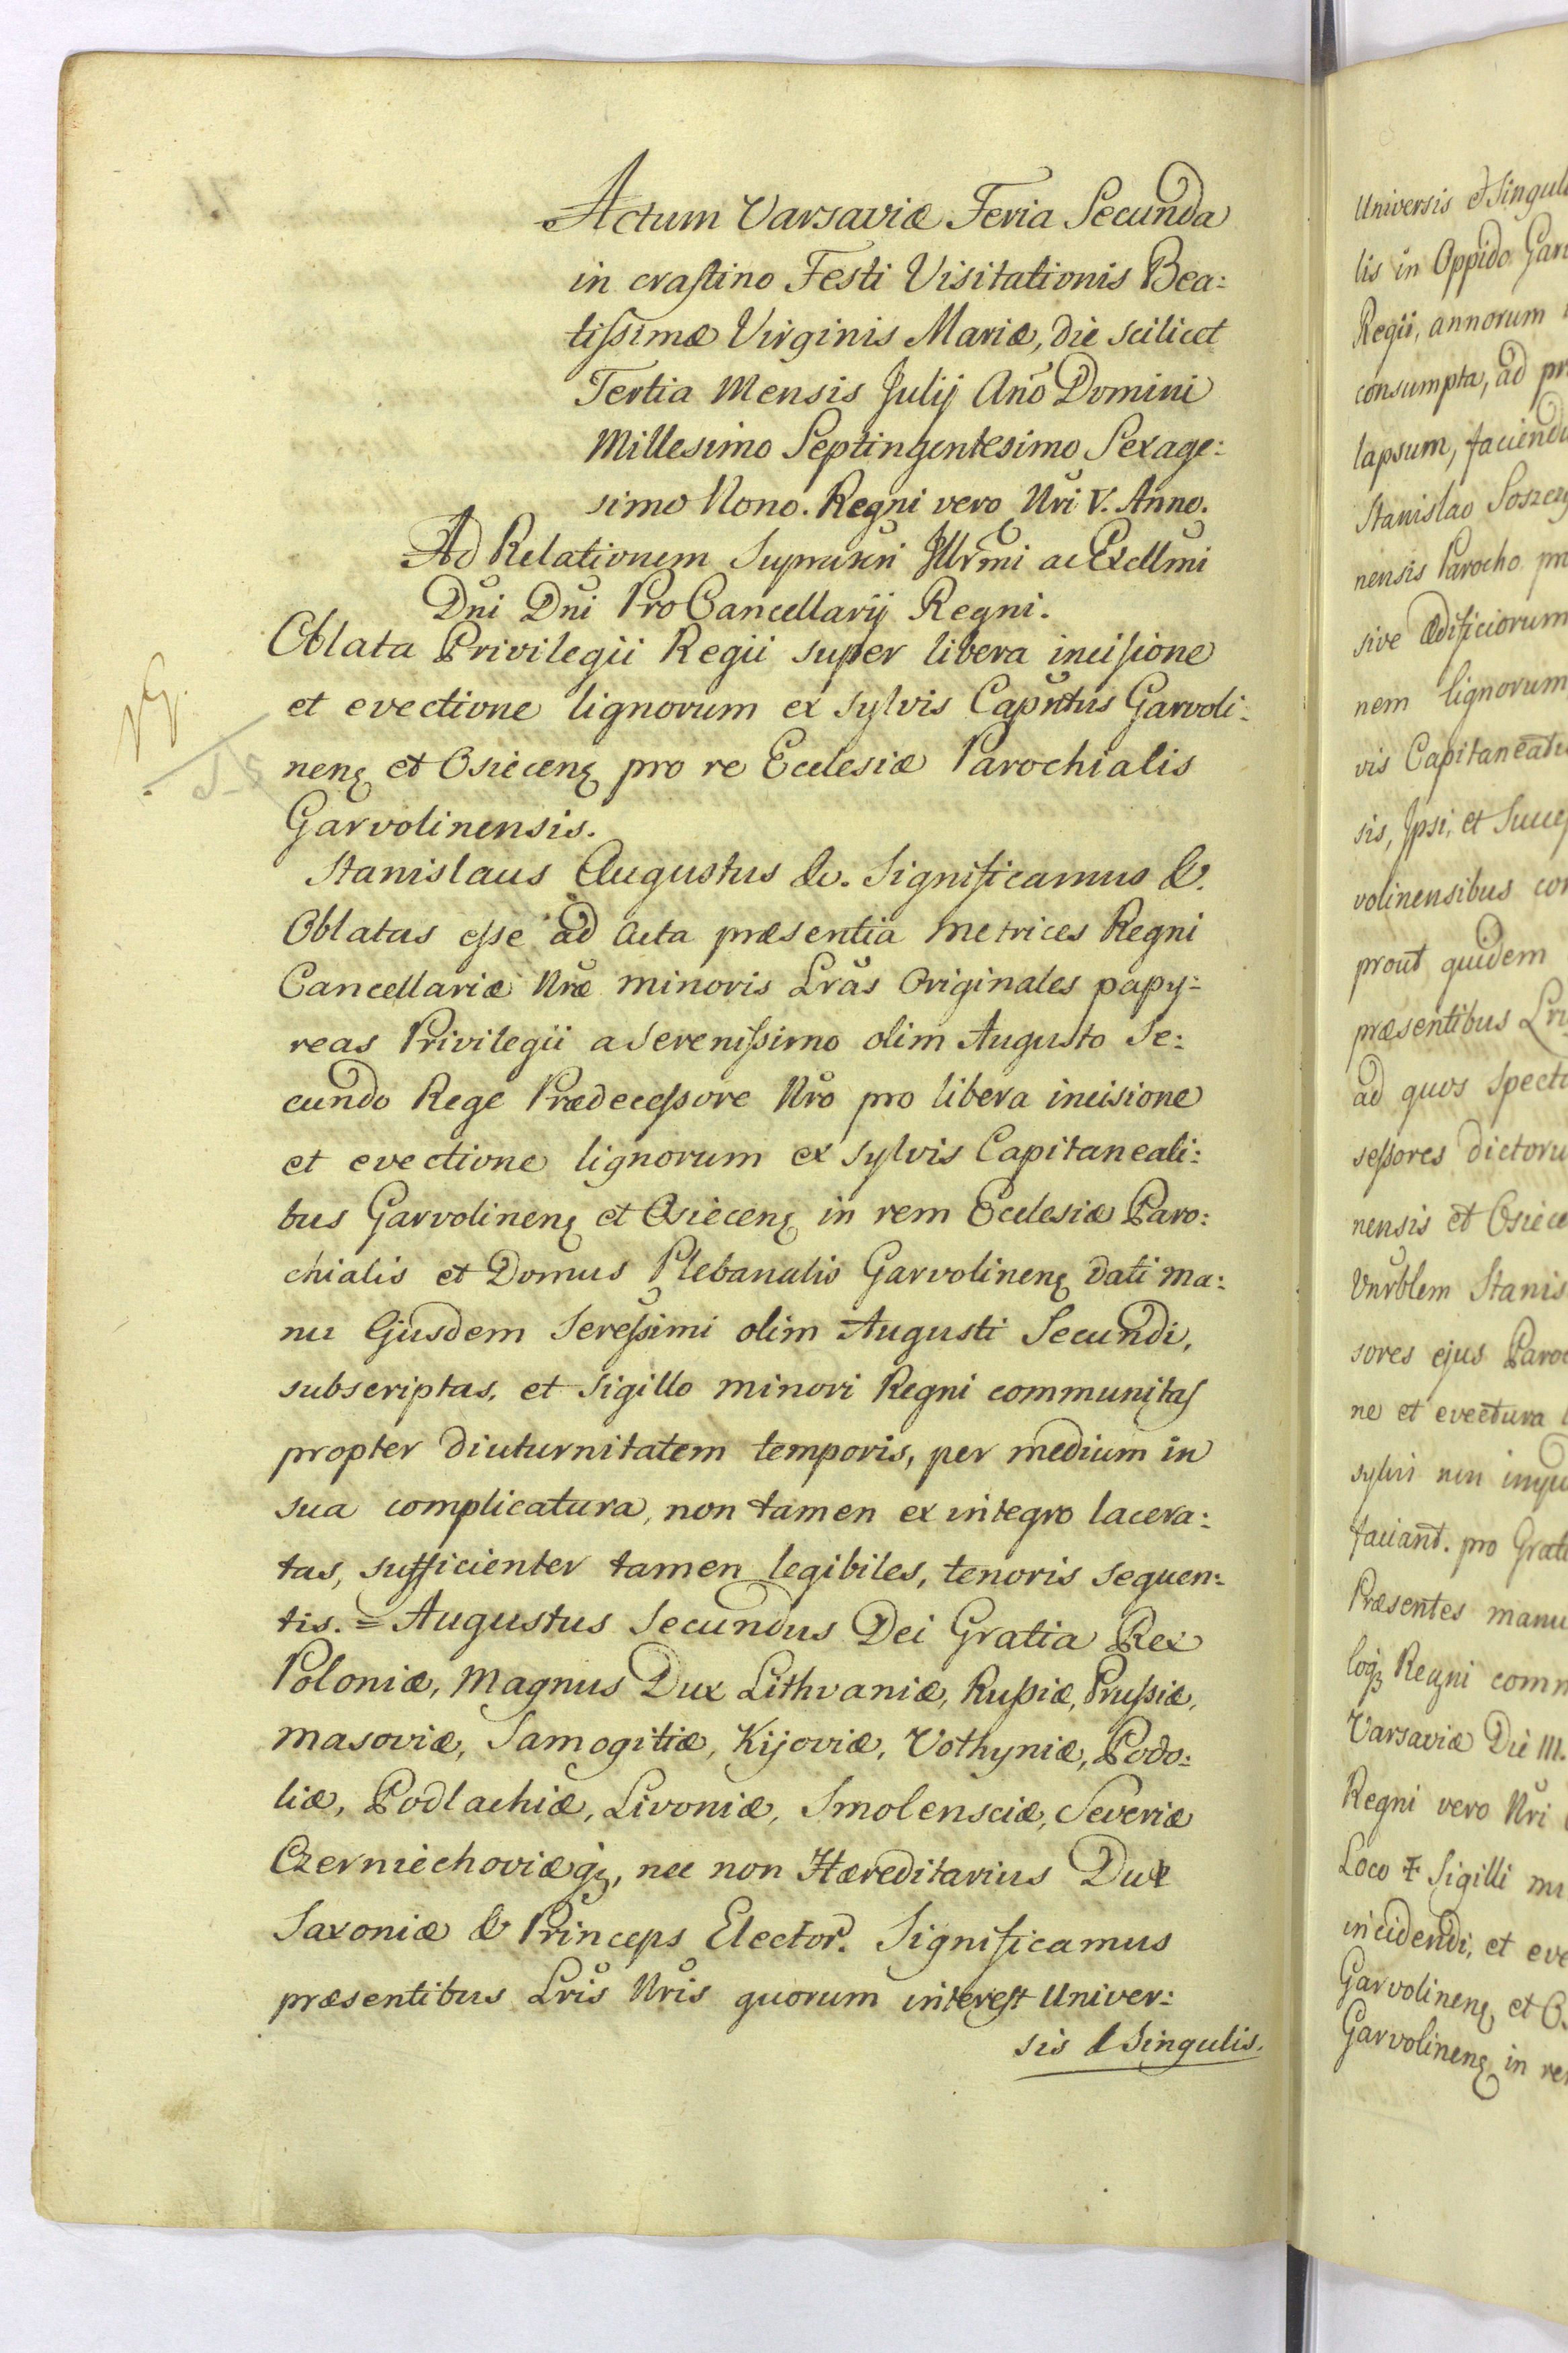 Actum Varsaviæ Feria Secunda
in crastino Festi Visitationis Bea:
tissimæ Virginis Mariæ, die scilicet
Tertia Mensis Julij Año Domini
Millesimo Septingentesimo Sexage:
simo Nono. Regni vero Nri V. Anno.
Ad Relationem Illrmi ac Excllmi
Dni Dni ProCancellarij Regni.
Oblata Privilegii Regii super libera incisione
et evectione lignorum ex sylvis Capntus Garvoli:
nenȩ et Osiecenȩ pro re Ecclesiæ Parochialis
Garvolinensis.
Stanislaus Augustus &c. Significamus &c.
Oblatas esse ad Acta præsentia Metrices Regni
Cancellariæ Nræ minoris Lras Originales papy:
reas Privilegii a Serenissimo olim Augusto Se:
cundo Rege Prædecessore Nro pro libera incisione
et evectione lignorum ex sylvis Capitaneali:
bus Garvolinenȩ et Osiecenȩ in rem Ecclesiæ Paro:
chialis et Domus Plebanalis Garvolinenȩ dati ma:
nu Ejusdem Seressimi olim Augusti Secundi,
subscriptas, et Sigillo minori Regni communitas
propter diuturnitatem temporis, per medium in
sua complicatura, non tamen ex integro lacera:
tas, sufficienter tamen legibiles, tenoris sequen:
tis. = Augustus Secundus Dei Gratia Rex
Poloniæ, Magnus Dux Lithvaniæ, Russiæ, Prussiæ,
Masoviæ, Samogitiæ, Kijoviæ, Volhyniæ, Podo:
liæ, Podlachiæ, Livoniæ, Smolensciæ, Severiæ
Czerniechoviæqȝ, nec non Hæreditarius Dux
Saxoniæ & Princeps Elector. Significamus
præsentibus Lris Nris quorum interest Univer:
sis & Singulis.
Universis et Singul
lis in Oppido Gar
Regii, annorum
consumpta, ad pr
lapsum, faciend
Stanislao Soszczy
nensis Parocho pr
sive ædificiorum
nem lignorum
vis Capitaneat
sis, Ipsi, et Succes
volinensibus con
prout quidem
præsentibus Lri
ad quos spect
sessores dictoru
nensis et Osiece
Vnrblem Stanis
sores ejus Paroc
ne et evectura
sylvis non
faciant. pro Grat
Præsentes manu
loqȝ Regni comm
Varsaviæ Die III.
Regni vero Nri
Loco ‡ Sigilli mi
incidendi, et eve
Garvolinenȩ et O
Garvolinenȩ in re